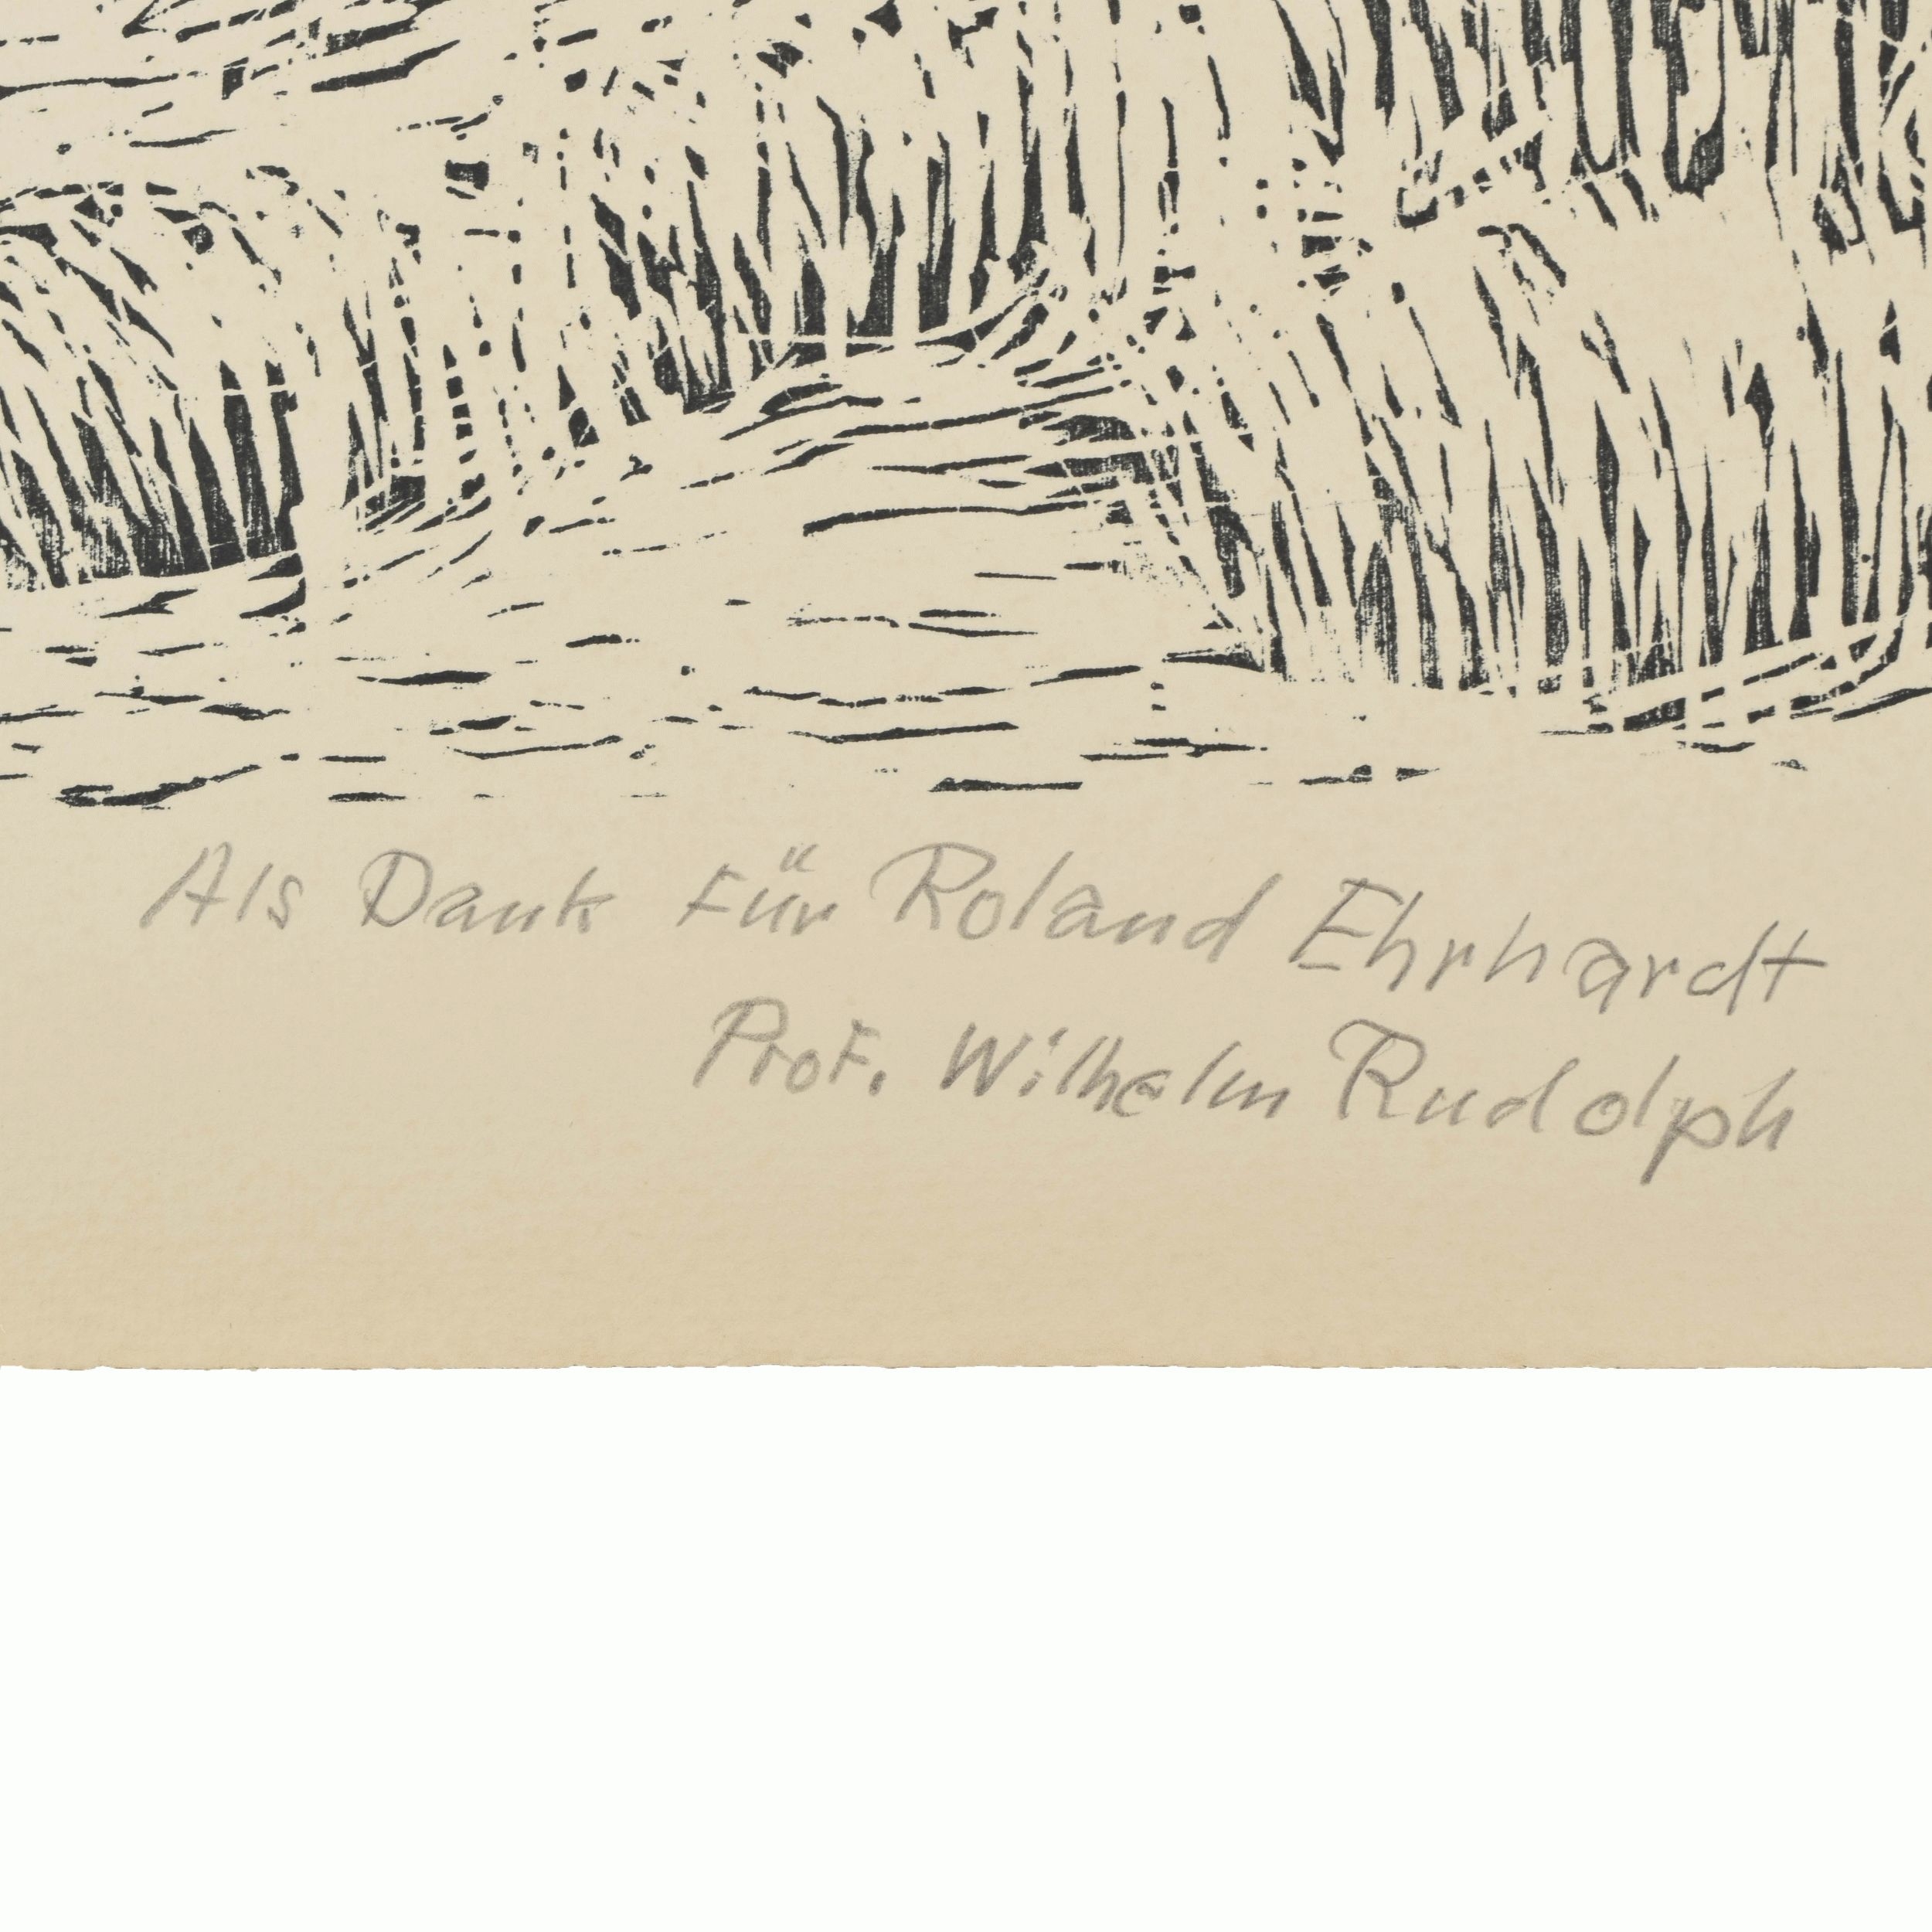 Als Dank für Roland Ehrhardt
Prof. Wilhelm Rudolph